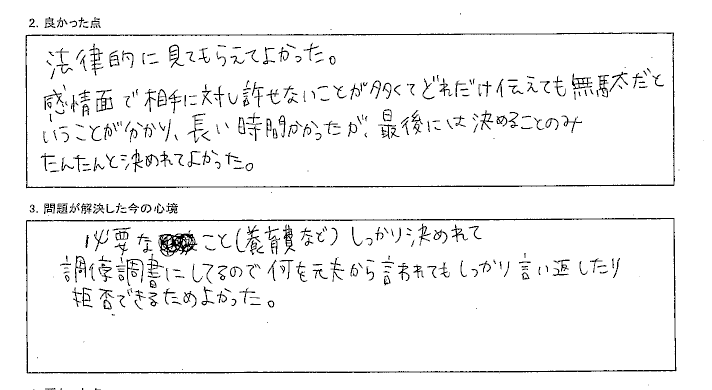 2. 良かった点
法律的に見てもらえてよかった。
感情面で相手に対し許せないことが多くてどれだけ伝えても無駄だと
いうことが分かり、長い時間かかったが、最後には決めることのみ
たんたんと決めれてよかった。
3. 問題が解決した今の心境
必要な こと(養育費など)しっかり決めれて
調停調書にしてるので何を元夫から言われてもしっかり言い返したり
拒否できるためよかった。